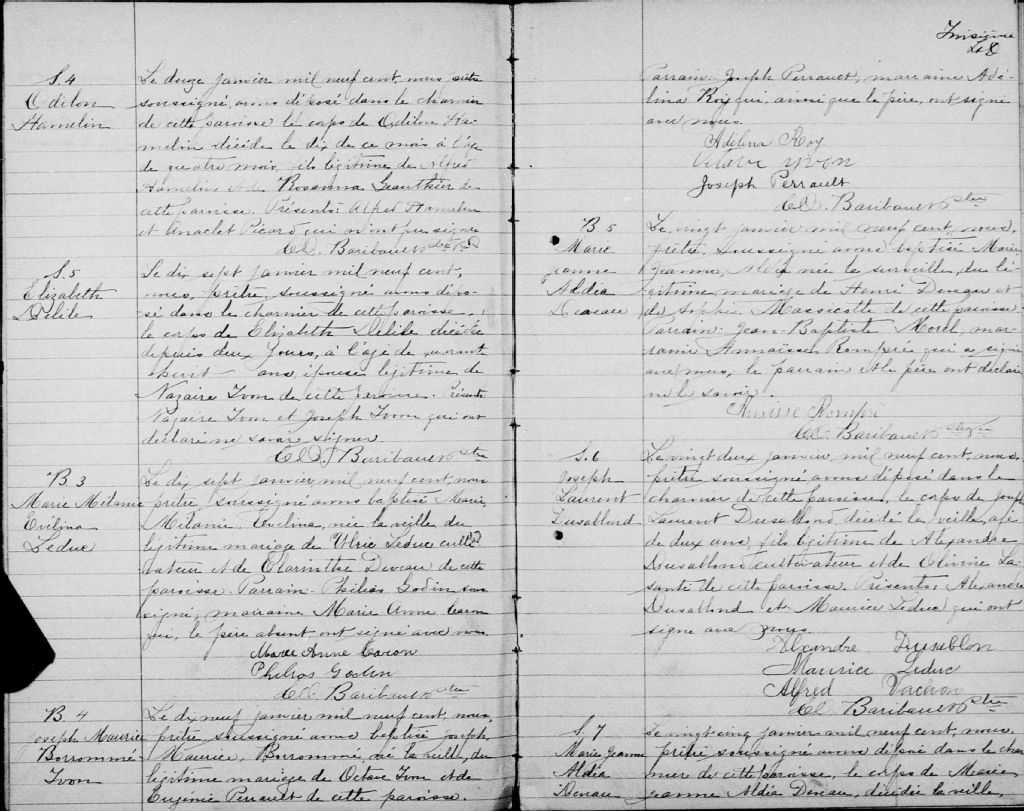 S. 4
Odilon
Hamelin
Le douze janvier mil neuf cent, nous, prêtre
soussigné, avons déposé dans le charnier
de cette paroisse le corps de Odilon Ha-
melin décédé le dix de ce mois à l'âge
de quatre mois, fils légitime de Alfred
Hamelin et de Rosanna Gauthier de
cette paroisse. Présents: Alfred Hamelin
et Anaclet Picard qui n'ont pu signer
Baribault ptre
S. 5
Elizabeth
Delile
Le dix sept janvier mil neuf cent,
nous, prêtre, soussigné avons dépo-
sé dans le charnier de cette paroisse
le corps de Elizabeth Delile décédée
depuis deux jours, à l'âge de quarant
huit ans, épouse légitime de
Nazaire Ivon de cette paroisse. Présents
Nazaire Ivon et Joseph Ivon qui ont
déclaré ne savoir signer.
Baribault ptre
B. 3
Marie Mélanie
Evilina
Leduc
Le dix sept janvier mil neuf cent, nous
prêtre soussigné avons baptisé Marie,
Mélanie, Evelina, née la veille du
légitime mariage de Ulric Leduc culti-
vateur et de Clarinthe Deveau de cette
paroisse. Parrain Philias Godin sous
signé, marraine Marie Anne Caron
qui, le père absent, ont signé avec nous.
Marie Anne Caron
Philias Godin
Baribault ptre
B. 4
Joseph Maurice
Borrommé
Ivon
Le dix neuf janvier mil neuf cent, nous,
prêtre soussigné avons baptisé Joseph,
Maurice, Borrommé, né la veille, du
légitime mariage de Octave Ivon et de
Eugénie Perrault de cette paroisse.
Parrain: Joseph Perrault, marraine Adé-
lina Roy qui, ainsi que le père, ont signé
avec nous.
Adelina Roy
Octave Yvon
Joseph Perrault
Baribault ptre
B. 5
Marie
Jeanne
Aldéa
Deveau
Le vingt janvier mil neuf cent, nous,
prêtre, soussigné avons baptisé Marie
Jeanne, Aldéa née le surveille, du lé-
gitime mariage de Henri Deveau et
de Sophie Massicotte de cette paroisse.
Parrain: Jean-Baptiste Morel, mar-
raine Annaïsse Rompré qui a signé
avec nous, le parrain et le père ont déclaré
ne le savoir.
Rompré
Baribault ptre
S. 6
Joseph
Laurent
Dusablond
Le vingt deux janvier, mil neuf cent, nous,
prêtre soussigné avons déposé dans le
charnier de cette paroisse, le corps de Joseph
Laurent Dusablond, décédé la veille, âgé
de deux ans, fils légitime de Alexandre
Dusablond cultivateur et de Olivine La-
santé de cette paroisse. Présents: Alexandre
Dusablond et Maurice Leduc qui ont
signé avec nous.
Alexandre Dusablon
Maurice Leduc
Alfred Vachon
Baribault ptre
S. 7
Marie Jeanne
Aldéa
Deveau
Le vingt cinq janvier mil neuf cent, nous,
prêtre soussigné avons déposé dans le char-
nier de cette paroisse, le corps de Marie
Jeanne Aldéa Deveau, décédée la veille,